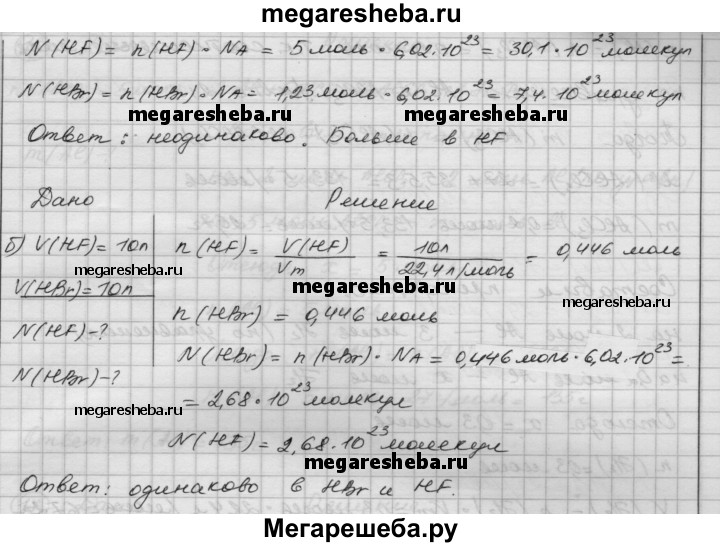 megaresheba.ru
N(HF) = n(HF) · NA = 5 моль · 6,02 · 10^23 = 30,1 · 10^23 молекул
N(HBr) = n(HBr) · NA = 1,23 моль · 6,02 · 10^23 = 7,4 · 10^23 молекул
megaresheba.ru megaresheba.ru
Ответ: неодинаково. Больше в HF
Дано Решение
б) V(HF) = 10л n(HF) = V(HF)/Vm = 10л/22,4л/моль = 0,446 моль
megaresheba.ru megaresheba.ru
V(HBr) = 10л
megaresheba.ru
n(HBr) = 0,446 моль
N(HF) - ?
N(HBr) = n(HBr) · NA = 0,446 моль · 6,02 · 10^23 =
N(HBr) - ?
= 2,68 · 10^23 молекул
megaresheba.ru
N(HF) = 2,68 · 10^23 молекул
megaresheba.ru
Ответ: одинаково в HBr и HF.
Мегарешеба.ру